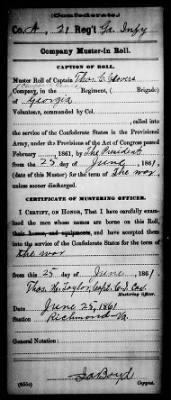 (Confederate.)
Co. A, 21 Reg't Ga. Infy
Company Muster-in Roll.
CAPTION OF ROLL.
Muster Roll of Captain Thos. C. Glover's
Company, in the Regiment, ( Brigade)
of Georgia
Volunteers, commanded by Col.
, called into
the service of the Confederate States in the Provisional
Army, under the Provisions of the Act of Congress passed
February , 1861, by The President
from the 25 day of June, 1861,
(date of this Muster) for the term of The war,
unless sooner discharged.
CERTIFICATE OF MUSTERING OFFICER.
I CERTIFY, ON HONOR, That I have carefully examined
the men whose names are borne on this Roll,
their horses, and equipments, and have accepted them
into the service of the Confederate States for the term of
the war
from this 25 day of June, 1861.
Thos. H. Taylor, Capt. C. S. Cav.
Mustering Officer.
Date June 25, 1861
Station Richmond Va.
General Notation:
Boyd
Copyist.